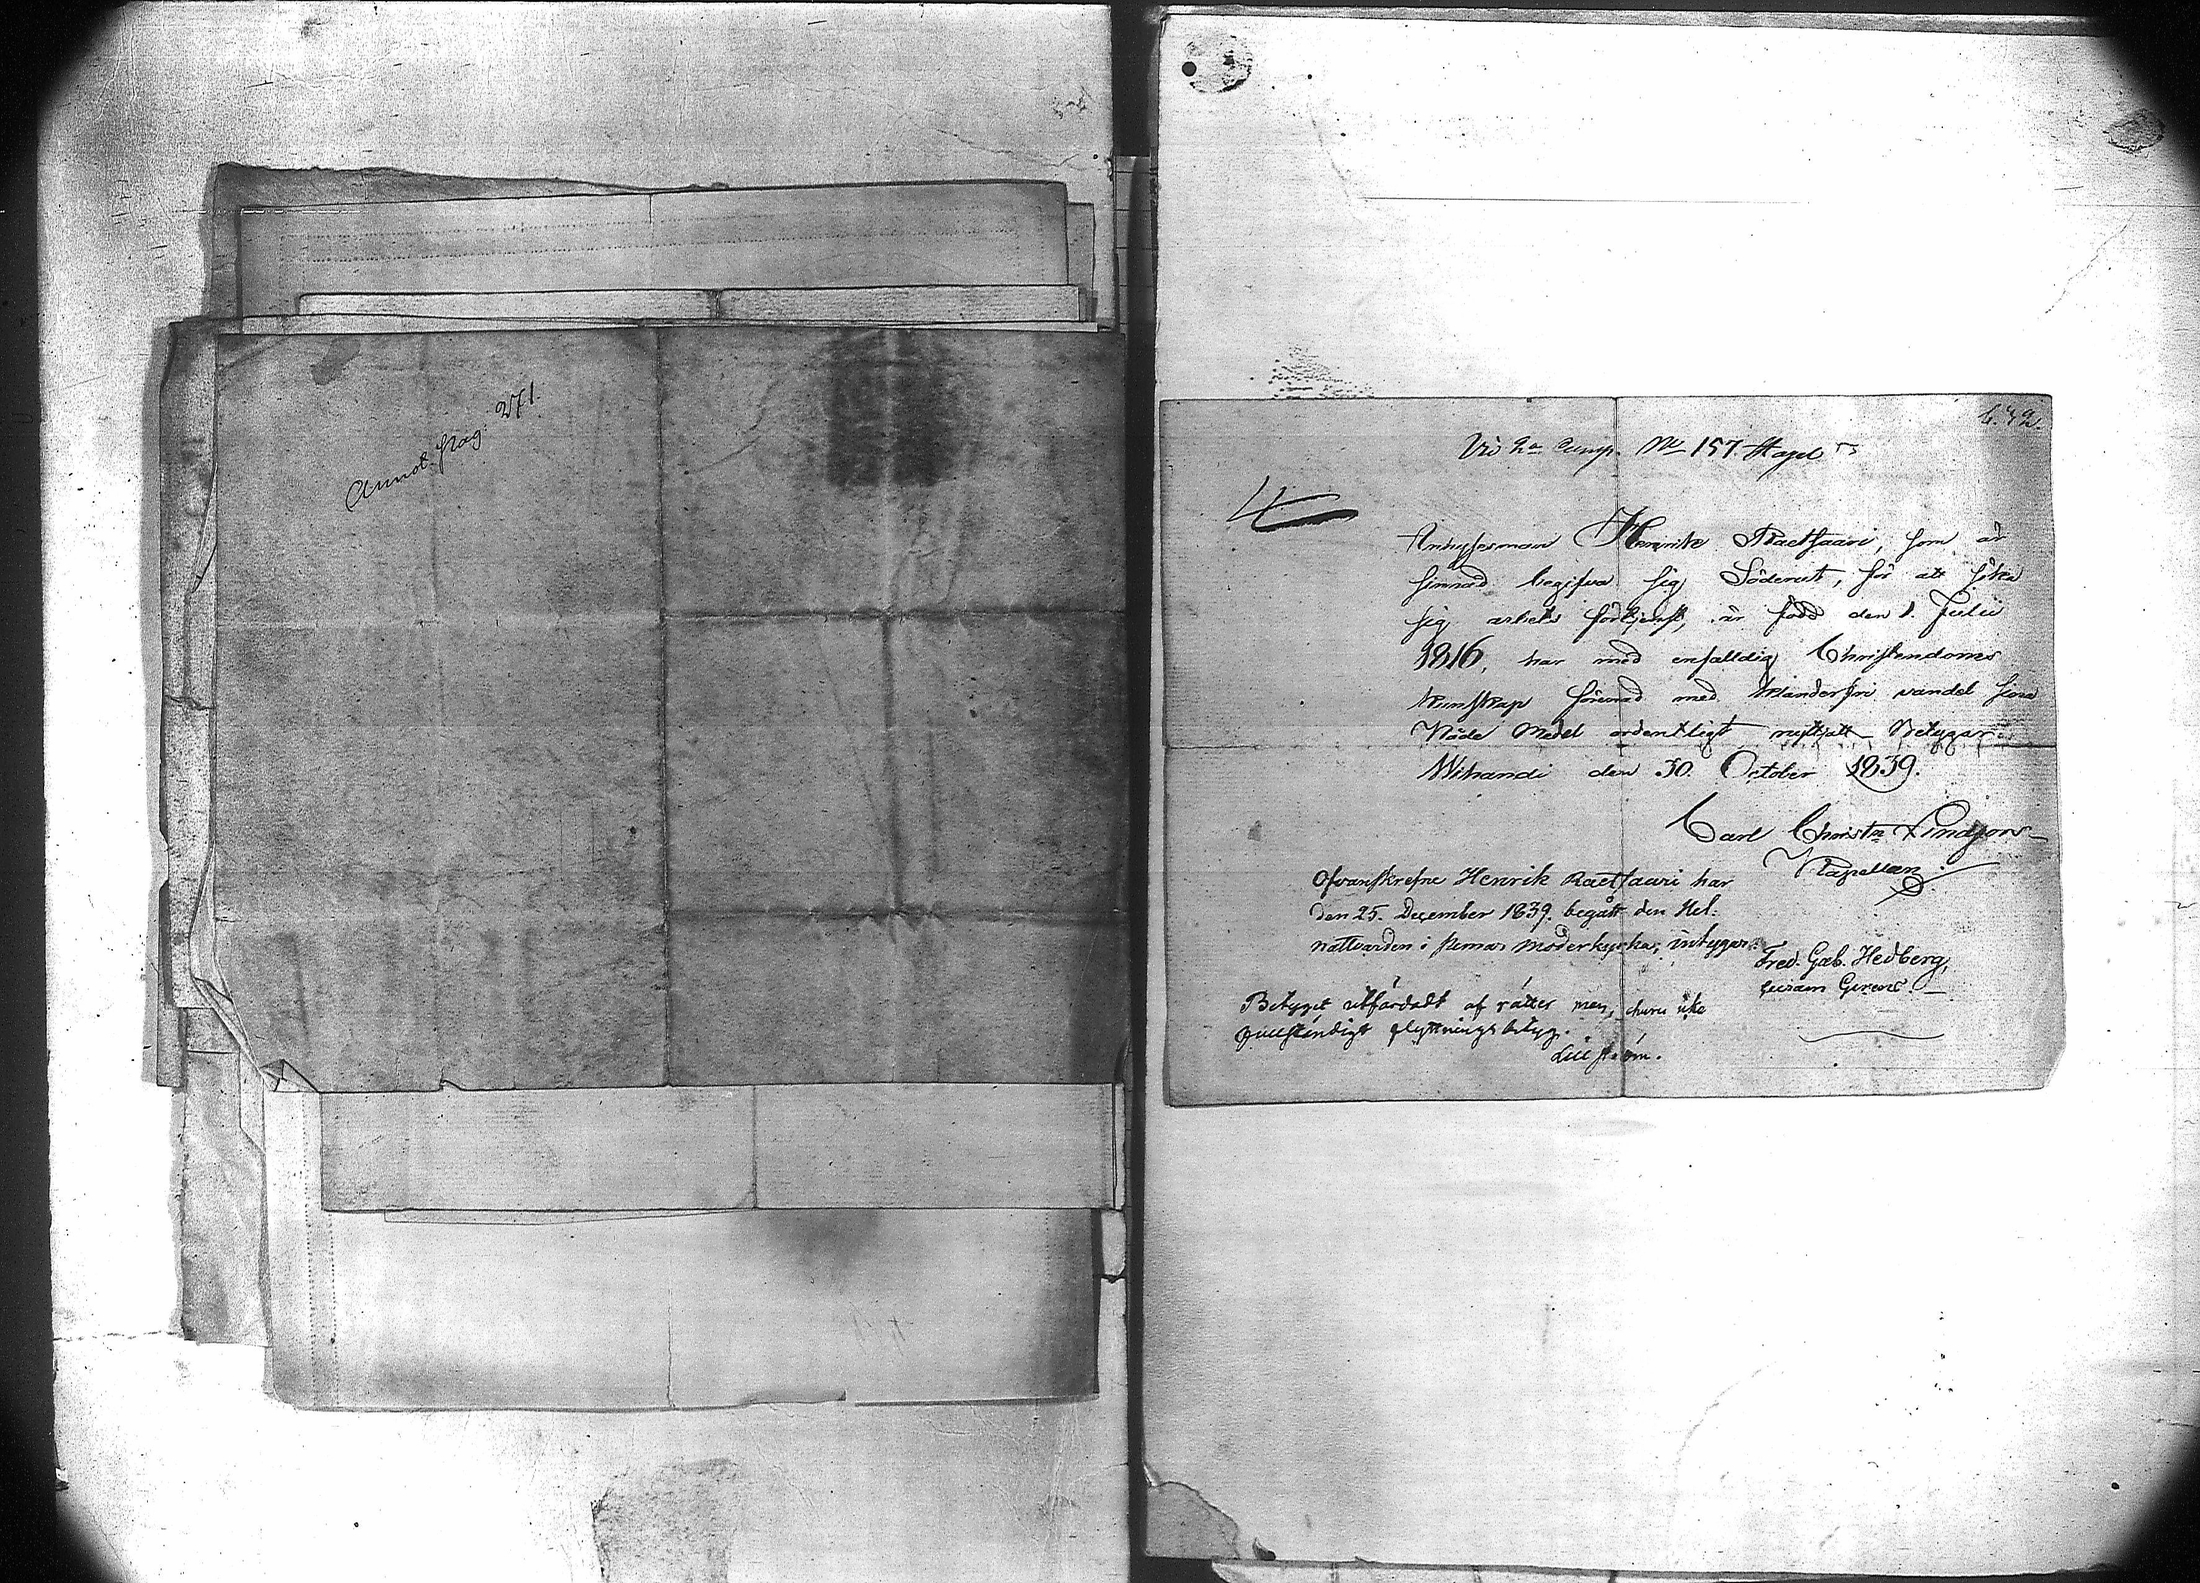 Annot. Pag. 271.
Vid 2a Comp. No 157. Stapel
4
Inhysesman Henrik Raetsaari, som är
sinnad begifva sig Söderut, för att söka
sig arbets förtjenst, är född den 1. Julii
1816, har med enfalldig Christendoms
kunskap förenad med klanderfri vandel sina
Nåde Medel ordentligt nyttjatt. Betygar:
Wihandi den 30. October 1839.
Carl Christn Lindfors
Kapellan.
Ofvanskrefne Henrik Raetsaari har
den 25. December 1839. begått den Hel:
nattvarden i Kemas moderkyrka, intygar:
Fred. Gab. Hedberg,
Betyget utfärdadt af rätter man, churu icke
fullständigt flyttningsbetyg.
Lillström.